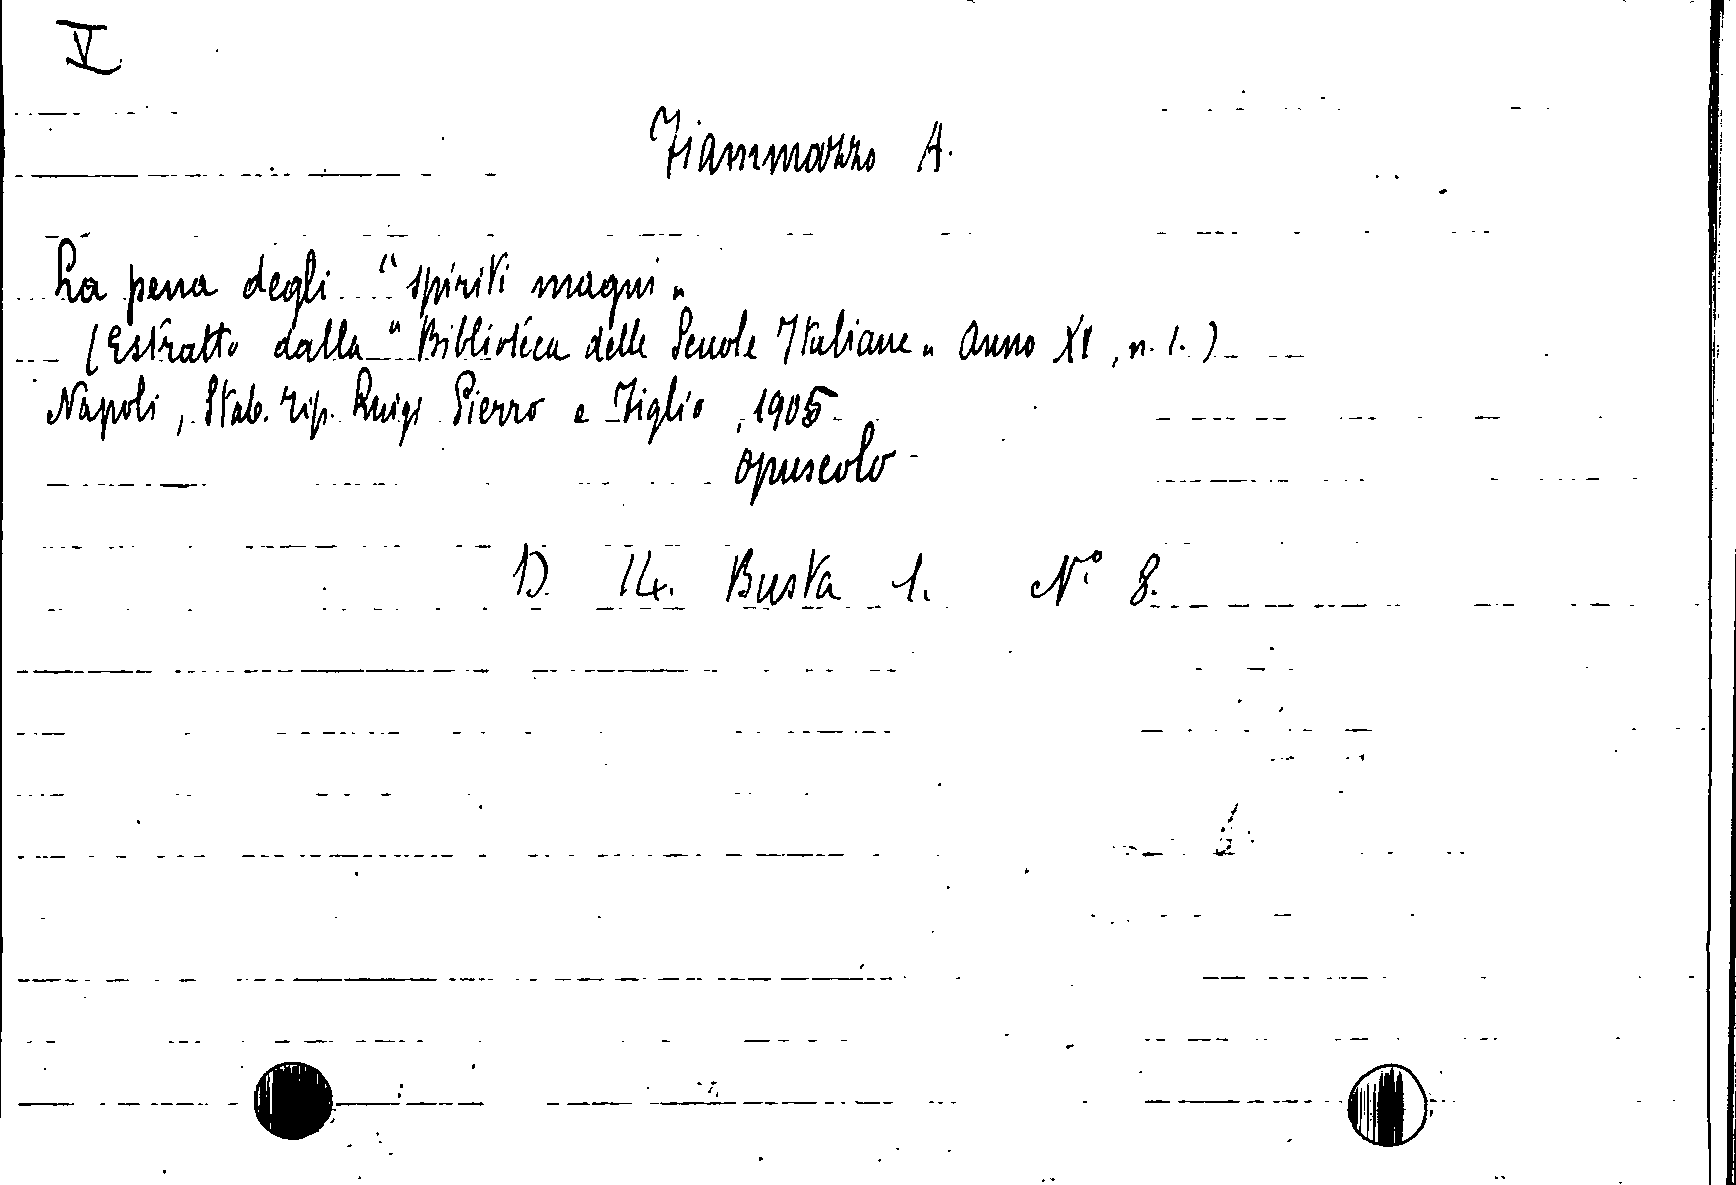 V
Fiammazzo A.
La pena degli "spiriti magni"
(Estratto dalla "Biblioteca delle Scuole Italiane" Anno XI, n. 1.)
Napoli, Stab. Tip. Luigi Pierro e Figlio, 1905
opuscolo
D. 14. Busta 1. N.° 8.